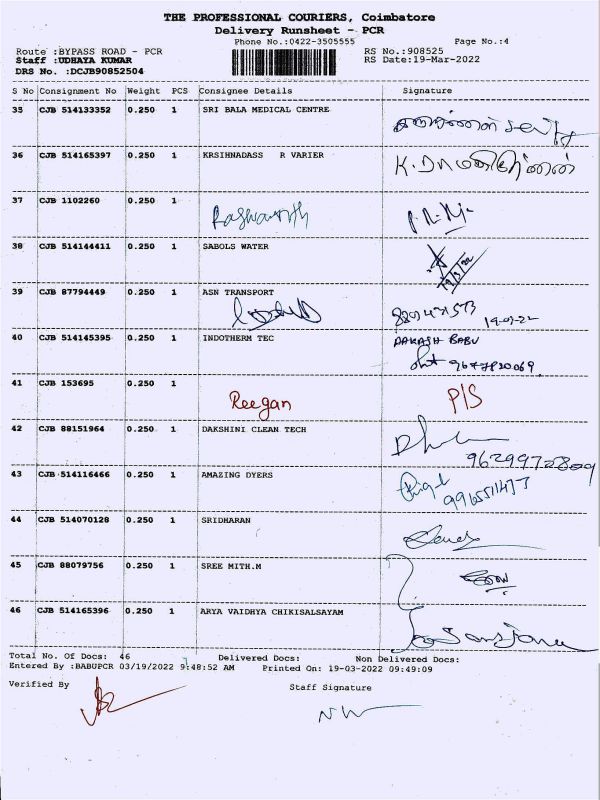 THE PROFESSIONAL COURIERS, Coimbatore
Delivery Runsheet - PCR
Phone No.:0422-3505555 Page No.:4
Route :BYPASS ROAD - PCR RS No.:908525
Staff :UDHAYA KUMAR RS Date:19-Mar-2022
DRS No. :DCJB90852504
S No Consignment No Weight PCS Consignee Details Signature
35 CJB 514133352 0.250 1 SRI BALA MEDICAL CENTRE
36 CJB 514165397 0.250 1 KRSIHNADASS R VARIER
37 CJB 1102260 0.250 1
38 CJB 514144411 0.250 1 SABOLS WATER
19/3/22
39 CJB 87794449 0.250 1 ASN TRANSPORT
40 CJB 514145395 0.250 1 INDOTHERM TEC
BABU
41 CJB 153695 0.250 1 Reegan P/S
42 CJB 88151964 0.250 1 DAKSHINI CLEAN TECH
43 CJB 514116466 0.250 1 AMAZING DYERS
44 CJB 514070128 0.250 1 SRIDHARAN
45 CJB 88079756 0.250 1 SREE MITH.M
46 CJB 514165396 0.250 1 ARYA VAIDHYA CHIKISALSAYAM
Total No. Of Docs: 46 Delivered Docs: Non Delivered Docs:
Entered By :BABUPCR 03/19/2022 9:48:52 AM Printed On: 19-03-2022 09:49:09
Verified By Staff Signature